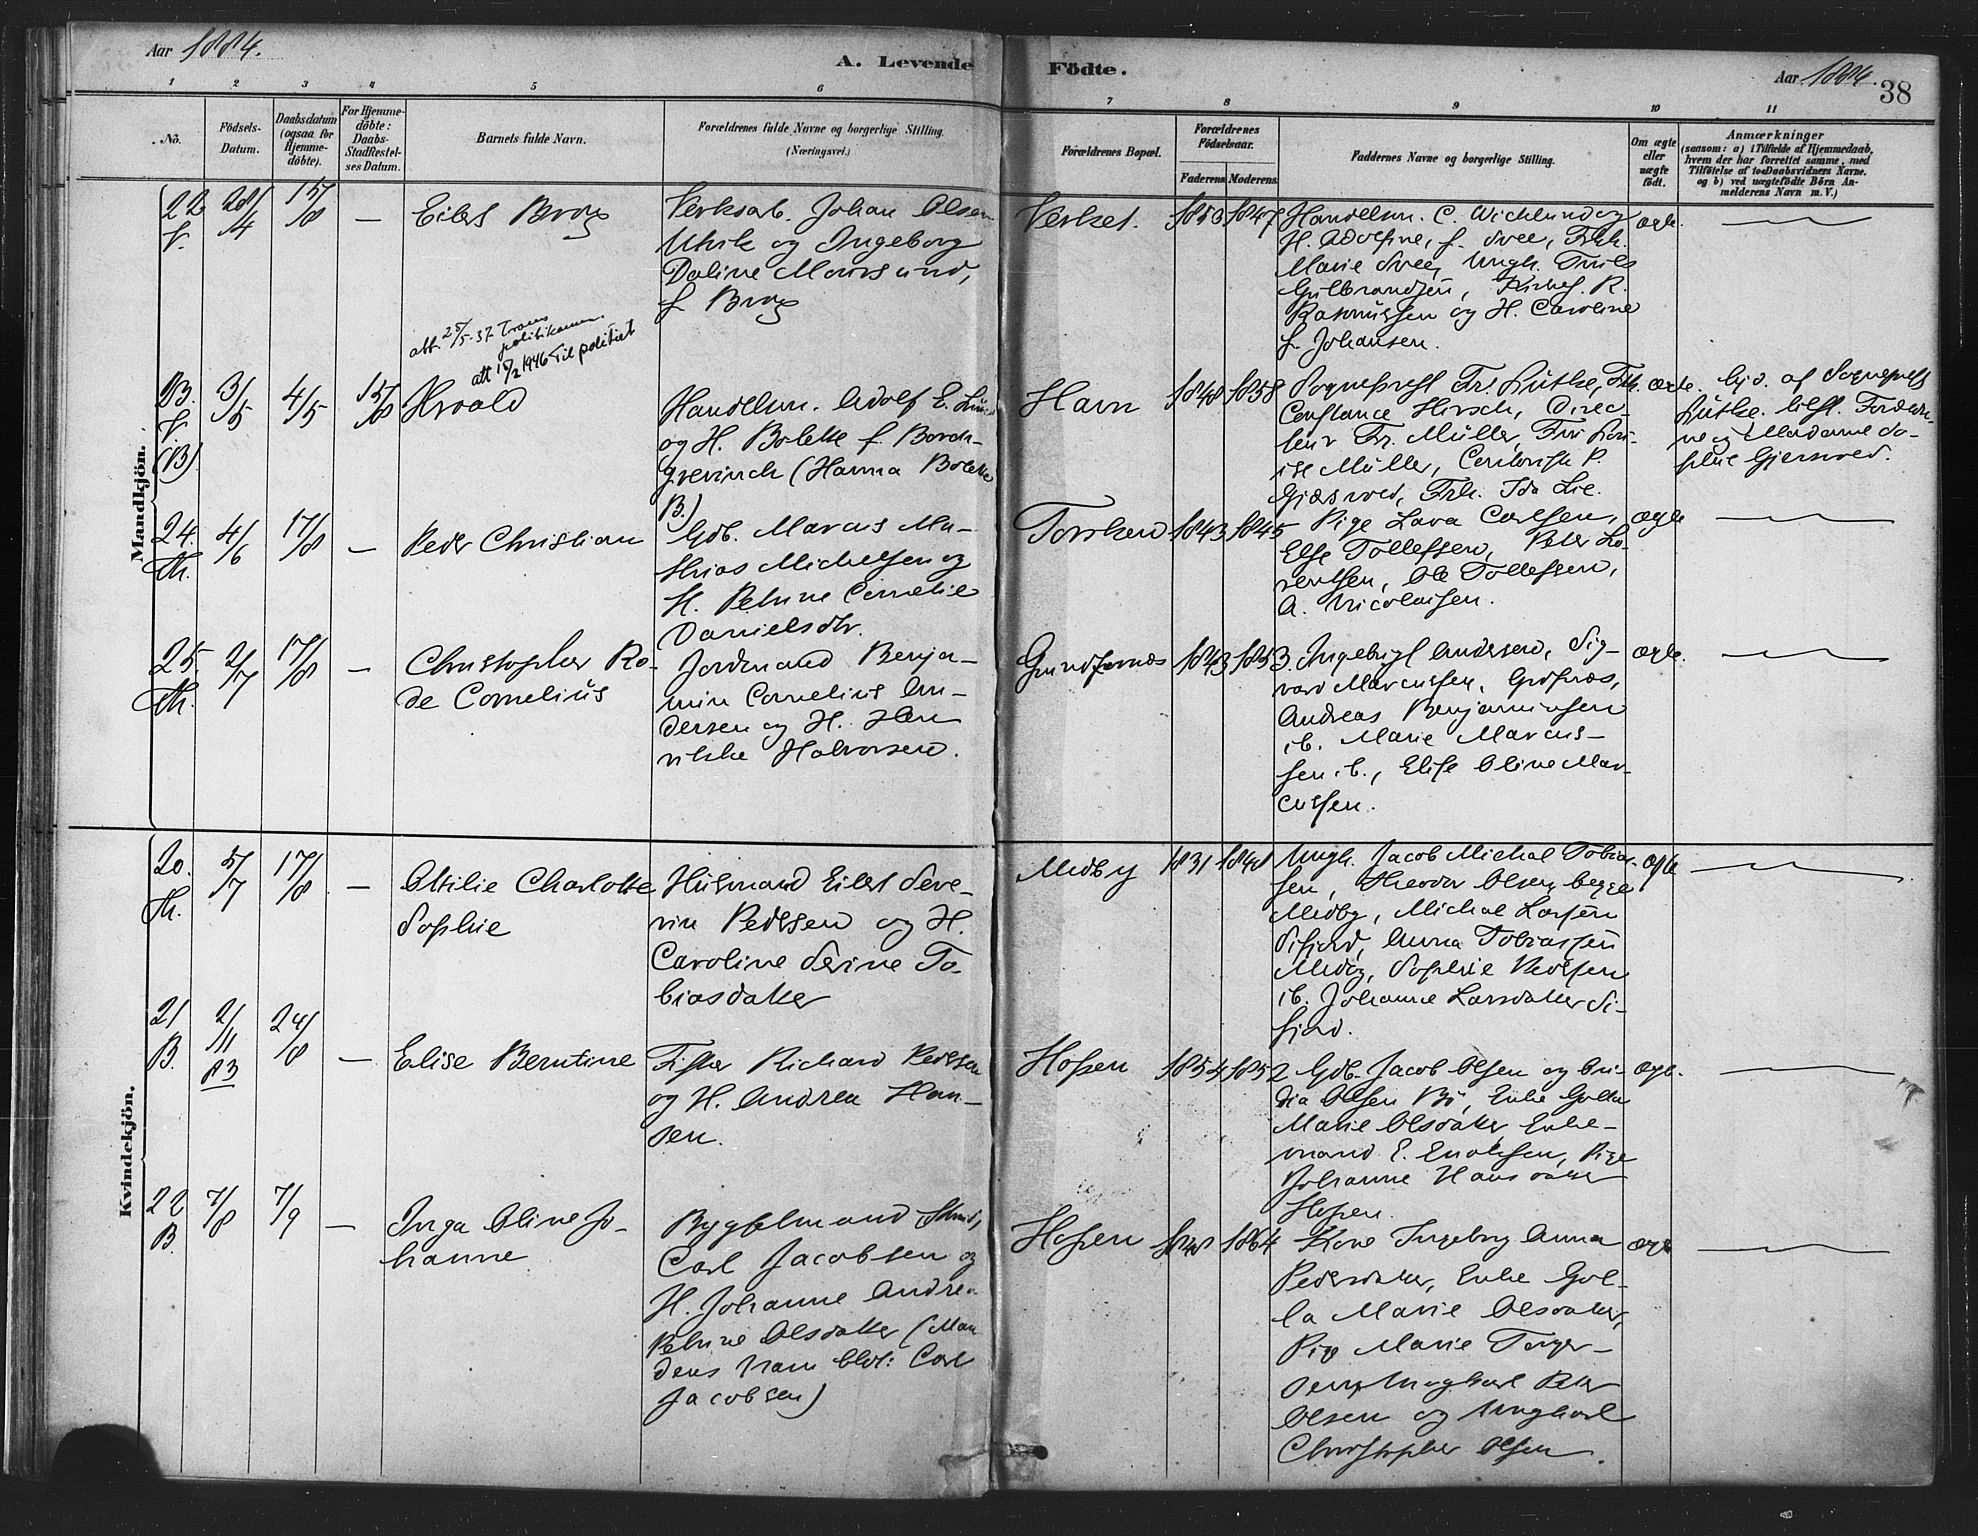 Aar 1884.
A. Levende Födte.
Aar 1884.
38
1 2 3 4 5 6 7 8 9 10 11
No.
Födsels-Datum.
Daabsdatum (ogsaa for Hjemmedöbte).
For Hjemmedöbte: Daabs-Stadfestelses Datum.
Barnets fulde Navn.
Forældrenes fulde Navne og borgerlige Stilling. (Næringsvei.)
Forældrenes Bopæl.
Forældrenes Födselsaar.
Faderens Moderens
Faddernes Navne og borgerlige Stilling.
Om ægte eller uægte födt.
Anmærkninger
(saasom: a) i Tilfælde af Hjemmedaab,
hvem der har forrettet samme, med
Tilföielse af to Daabsvidners Navne.
og b) ved uægtefödte Börn An-
melderens Navn m. V.)
Mandkjön.
22
28/4
15/8
—
Eilert Brox
Verksarb. Johan Olsen
Ulvik og Ingeborg
Daline
f. Brox
Verket.
1853
1847
Handelsm. C. Wichlund og
H. Adolfine, f. Svee, Frk.
Marie Svee, Ungk.
Gulbrandsen, R.
Rasmussen og H. Caroline
f. Johansen.
ægte.
att. 25/5-37 Troms
politikammer.
att 15/2 1946 til politiet
23.
(B)
3/5
4/5
15/8
Hroald
Handelsm. Adolf E.
og H. Bolette f. Borch-
grevinch (Hanna Bolette
B.)
Havn
1848
1858
Sogneprest Fr. Lütke, Frk.
Constance Hirsch, Direc-
teur Fr. Müller, Fru Lou-
ise Müller, P.
Gjæsvold, Frk. Ida Lie.
ægte.
hjd. af Sogneprest
Lütke.
og Madame Jo-
24.
Th.
4/6
17/8
—
Peder Christian
Gdb. Marcus Ma-
thias Michelsen og
H. Petrine Cornelie
Danielsdtr.
Torsken
1843
1845
Pige Lava Carlsen,
Else Tollefsen, Peter Lo-
rentsen, Ole Tollefsen,
A. Nicolaisen.
ægte
25.
Th.
2/7
17/8
—
Christopher Ro-
de Cornelius
Jordmand Benja-
min Cornelius An-
dersen og H. Hen
rikke Halvorsen.
Grundfarnes
1843
1853
Ingebrigt Andersen, Sig-
vard Marcussen,
Andreas Benjaminsen
ib. Marie Marcus-
sen ib., Elise Oline Mar-
cussen.
ægte.
Kvindekjön.
20.
Th.
5/7
17/8
—
Ottilie Charlotte
Sophie
Husmand Eilert Seve-
rin Pedersen og H.
Caroline Serine To-
biasdatter
Medby
1831
1848
Ungk. Jacob Michal Tobias-
sen, Theodor Olsen begge
Medby, Michal Larsen
Sifjord, Anna Tobiassen
Medby, Sophie Pedersen
ib. Johanne Larsdatter Si-
fjord.
ægte
21
B.
2/11
83
24/8
—
Elise Berntine
Fisker Richard Pedersen
og H. Andrea Han-
sen.
Hopen
1854
1852
Gdb. Jacob Olsen og
Olsen Bö, Enke Golla
Marie Olsdatter, Enke-
mand E. Enoksen, Pige
Johanne Hansdatter
Hopen.
ægte.
22
B.
7/8
7/9
—
Inga Oline Jo-
hanne
Bygselmand
Carl Jacobsen og
H. Johanne Andrea
Petrine Olsdatter (Man
dens Navn blot: Carl
Jacobsen)
Hopen
1848
1864
Kone Ingeborg Anna
Pedersdatter, Enke Gol-
la Marie Olsdatter,
Pige Marie Torger-
sen, Ungkarl Peter
Olsen og Ungkarl
Christopher Olsen.
ægte